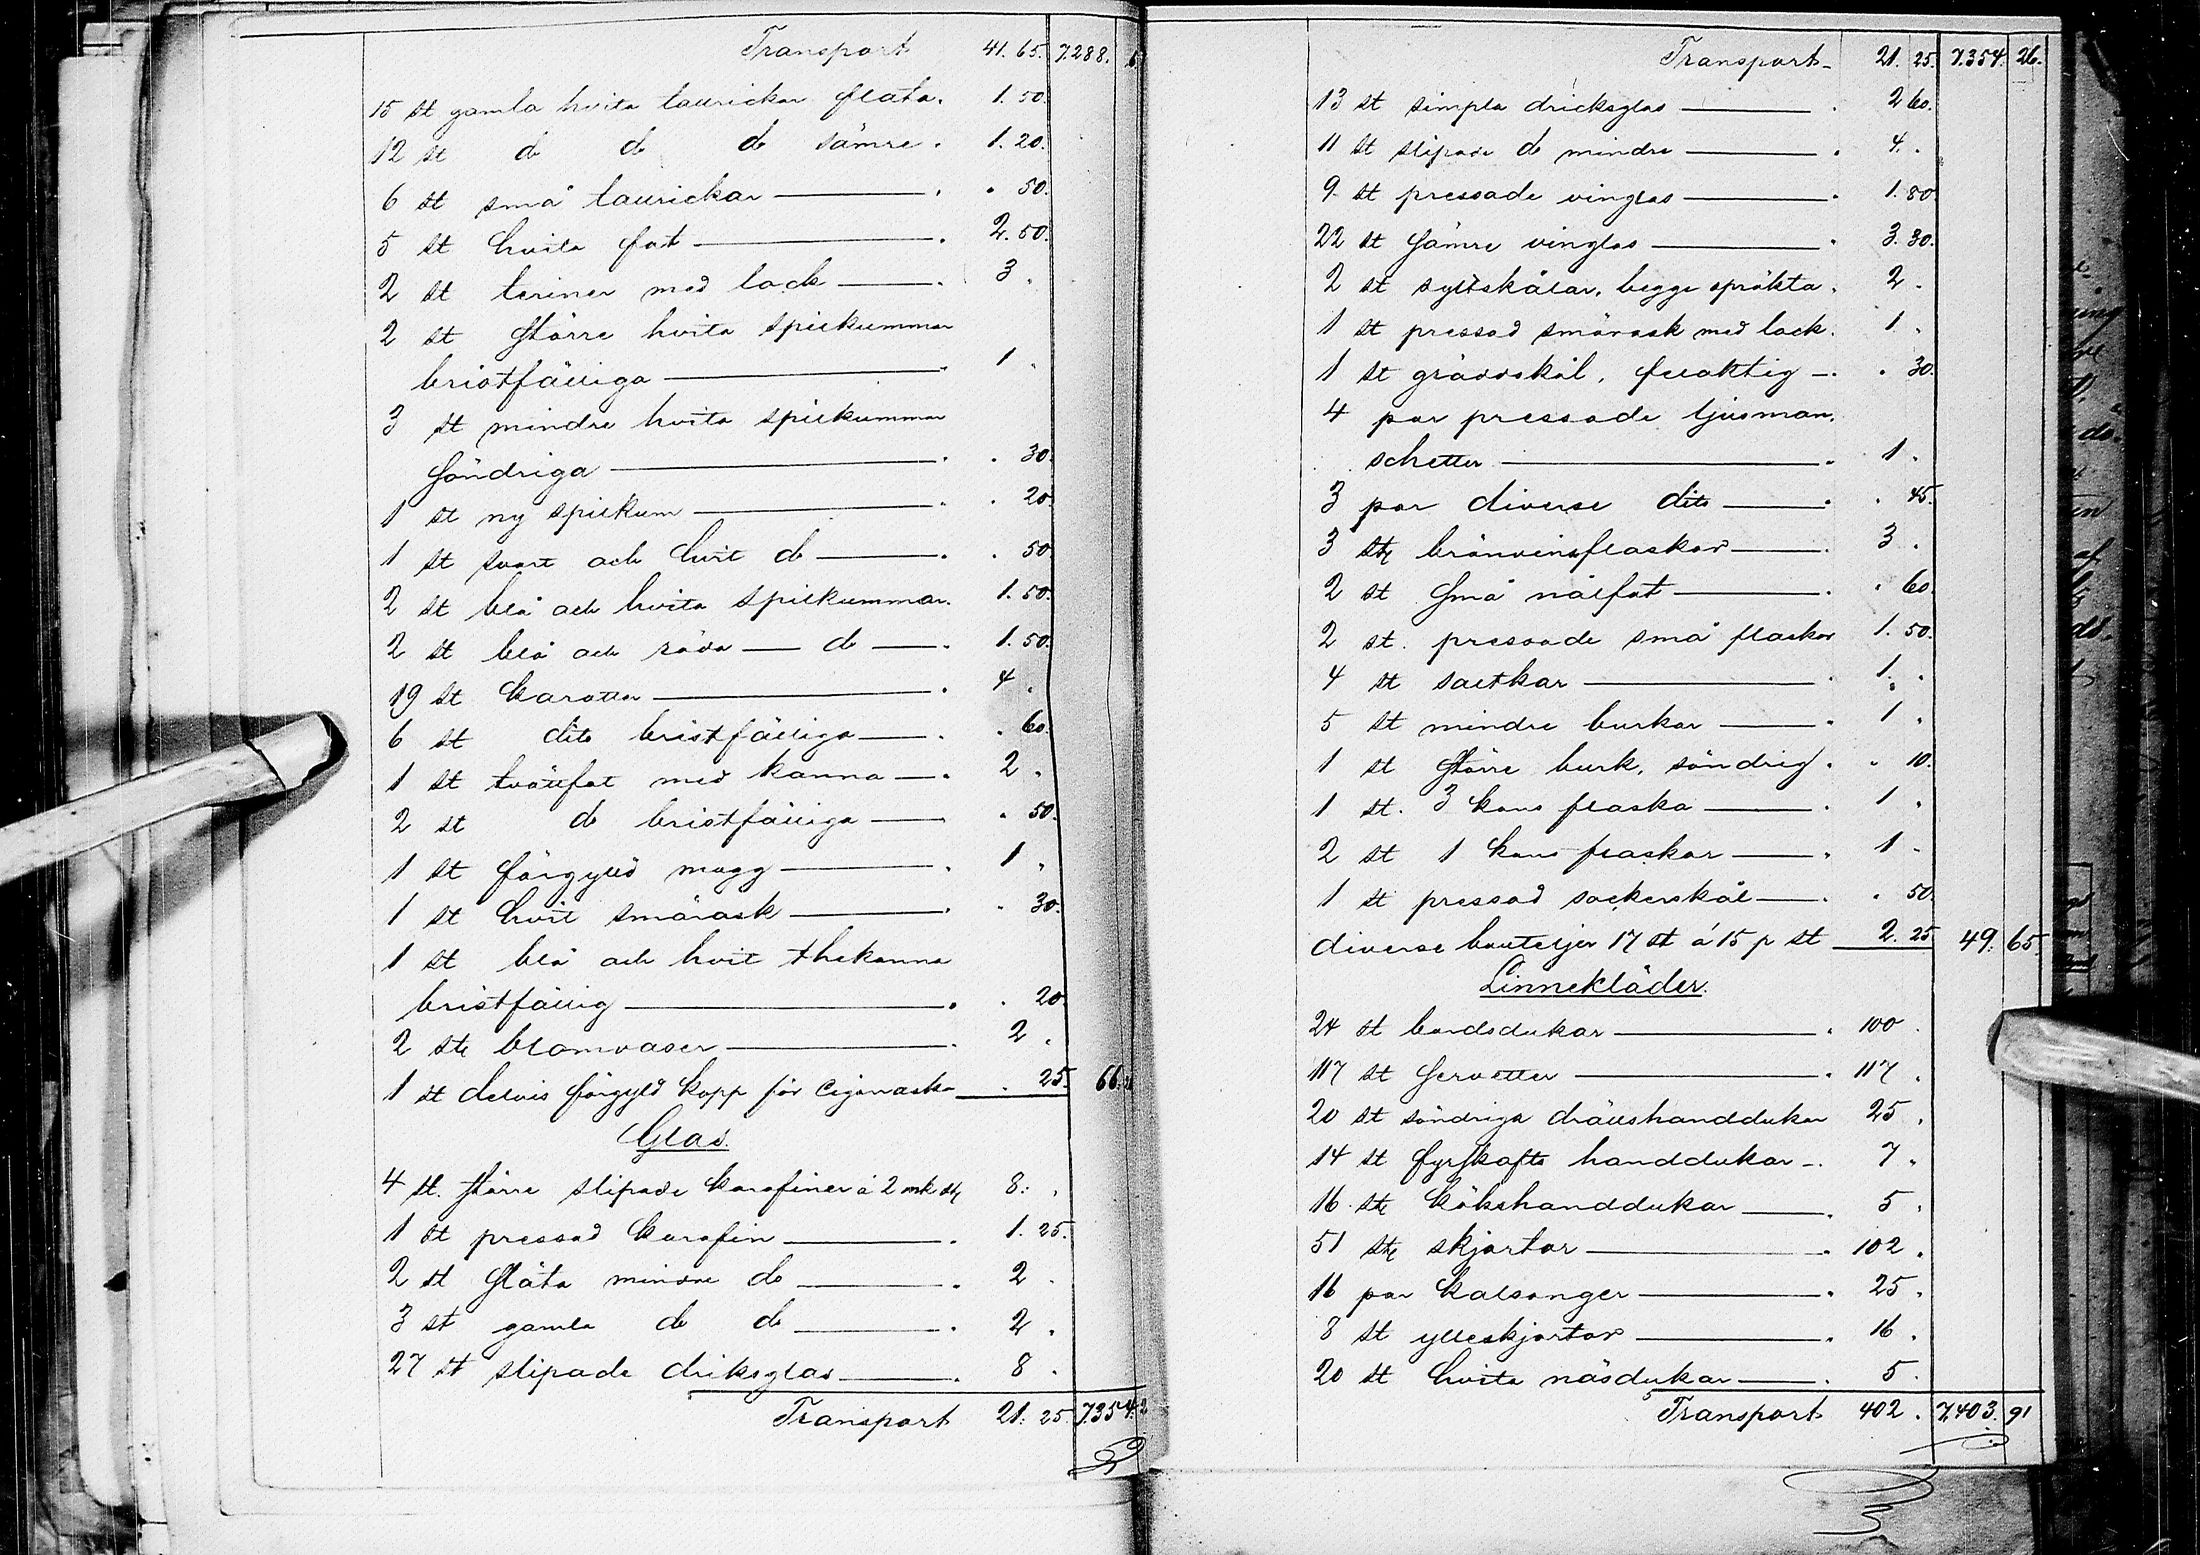 Transport 41. 65. 7288. 6
15 st gamla hvita taurickar flata. 1. 50.
12 st do do do sämre. 1. 20.
6 st små taurickar . 50.
5 st hvita fat 2. 50.
2 st teriner med lock 3 .
2 st större hvita spilkummar
bristfälliga 1 .
3 st mindre hvita spilkummar
söndriga . 30.
1 st ny spilkum . 20
1 st svart och hvit do . 50
2 st blå och hvita spilkummar. 1. 50.
2 st blå och röda do 1. 50.
19 st karotter 4 .
6 st dito bristfälliga . 60.
1 st tvättfat med kanna 2 .
2 st do bristfälliga . 50.
1 st förgylld mugg 1 .
1 st hvit smörask . 30.
1 st blå och hvit thekanna
bristfällig . 20.
2 stk blomvaser 2 .
1 st delvis förgyld kopp för cigarraska . 25. 66.
Glas.
4 st. större slipade karafiner á 2 mk stk 8: .
1 st pressad karafin 1. 25.
2 st släta mindre do 2 .
3 st gamla do do 2 .
27 st slipade driksglas 8 .
Transport 21. 25. 7354. 2
Transport 21. 25. 7.354. 26.
13 st simpla dricksglas 2 60.
11 st slipade do mindre 4. .
9 st pressade vinglas 1. 80.
22 st sämre vinglas 3. 30.
2 st syltskålar, begge spräkta. 2 .
1 st pressad smörask med lock. 1 .
1 st gräddskål, felaktig . 30.
4 par pressade ljusman.
schetter 1 .
3 par diverse dito . 45.
3 stk bränvinsflaskor 3 .
2 st små nålfat . 60.
2 st. pressade små flaskor 1. 50.
4 st saltkar 1. .
5 st mindre burkar 1 .
1 st större burk, söndrig . 10.
1 st. 3 kans flaska 1 .
2 st 1 kans flaskor 1 .
1 st pressad sockerskål . 50.
diverse bouteljer 17 st á 15 p st 2. 25 49. 65.
Linnekläder.
24 st bordsdukar 100 .
117 st servetter 117 .
20 st söndriga drällshanddukar 25 .
14 st fyrskafts handdukar 7 .
16 stk kökshanddukar 5 .
51 stk skjortor 102 .
16 par kalsonger 25 .
8 st ylleskjortor 16 .
20 st hvita näsdukar 5 .
Transport 402 . 7,403. 91